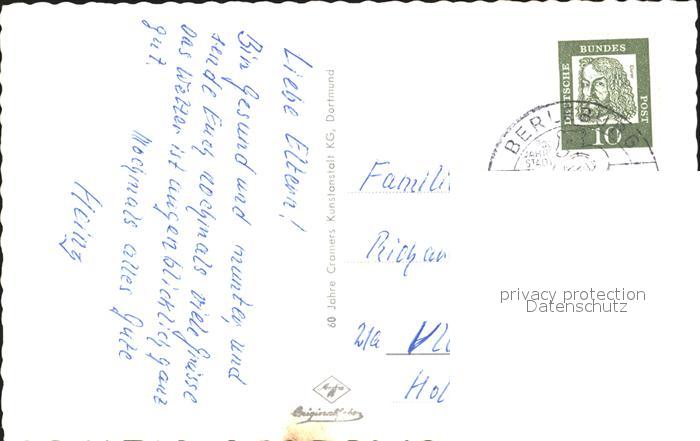 Liebe Eltern!
Bin Gesund und munter, und
sende Euch nochmals viele Grüsse
Das Wetter ist augenblicklich ganz
gut.
Nochmals alles Gute
Heinz
60 Jahre Cramers Kunstanstalt KG, Dortmund
DEUTSCHE
BUNDES
POST
Dürer
10
BERLEBURG
Famili
Richar
Hol
Agfa
Originalfoto
privacy protection
Datenschutz